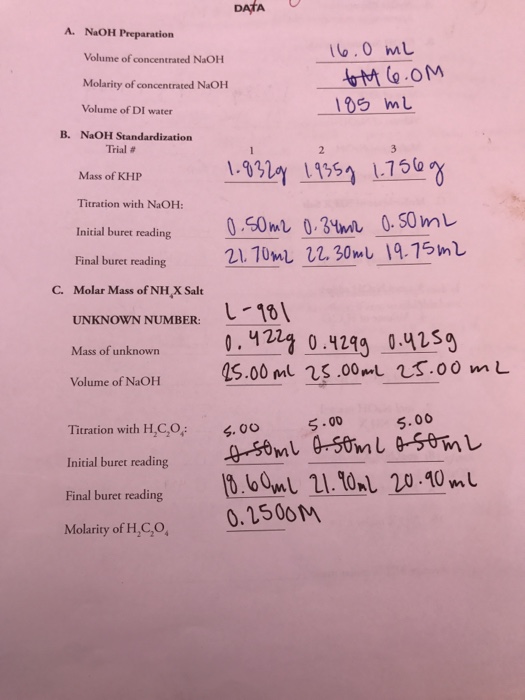 DATA
A. NaOH Preparation
Volume of concentrated NaOH 16.0 mL
Molarity of concentrated NaOH 6M 6.0M
Volume of DI water 185 mL
B. NaOH Standardization
Trial # 1 2 3
Mass of KHP 1.832g 1.935g 1.756g
Titration with NaOH:
Initial buret reading 0.50mL 0.34mL 0.50mL
Final buret reading 21.70mL 22.30mL 19.75mL
C. Molar Mass of NH₄X Salt
UNKNOWN NUMBER: L-981
Mass of unknown 0.422g 0.429g 0.425g
Volume of NaOH 25.00 mL 25.00mL 25.00 mL
Titration with H₂C₂O₄: 5.00 5.00 5.00
Initial buret reading 0.50mL 0.50mL 0.50mL
Final buret reading 18.60mL 21.90mL 20.90mL
Molarity of H₂C₂O₄ 0.2500M